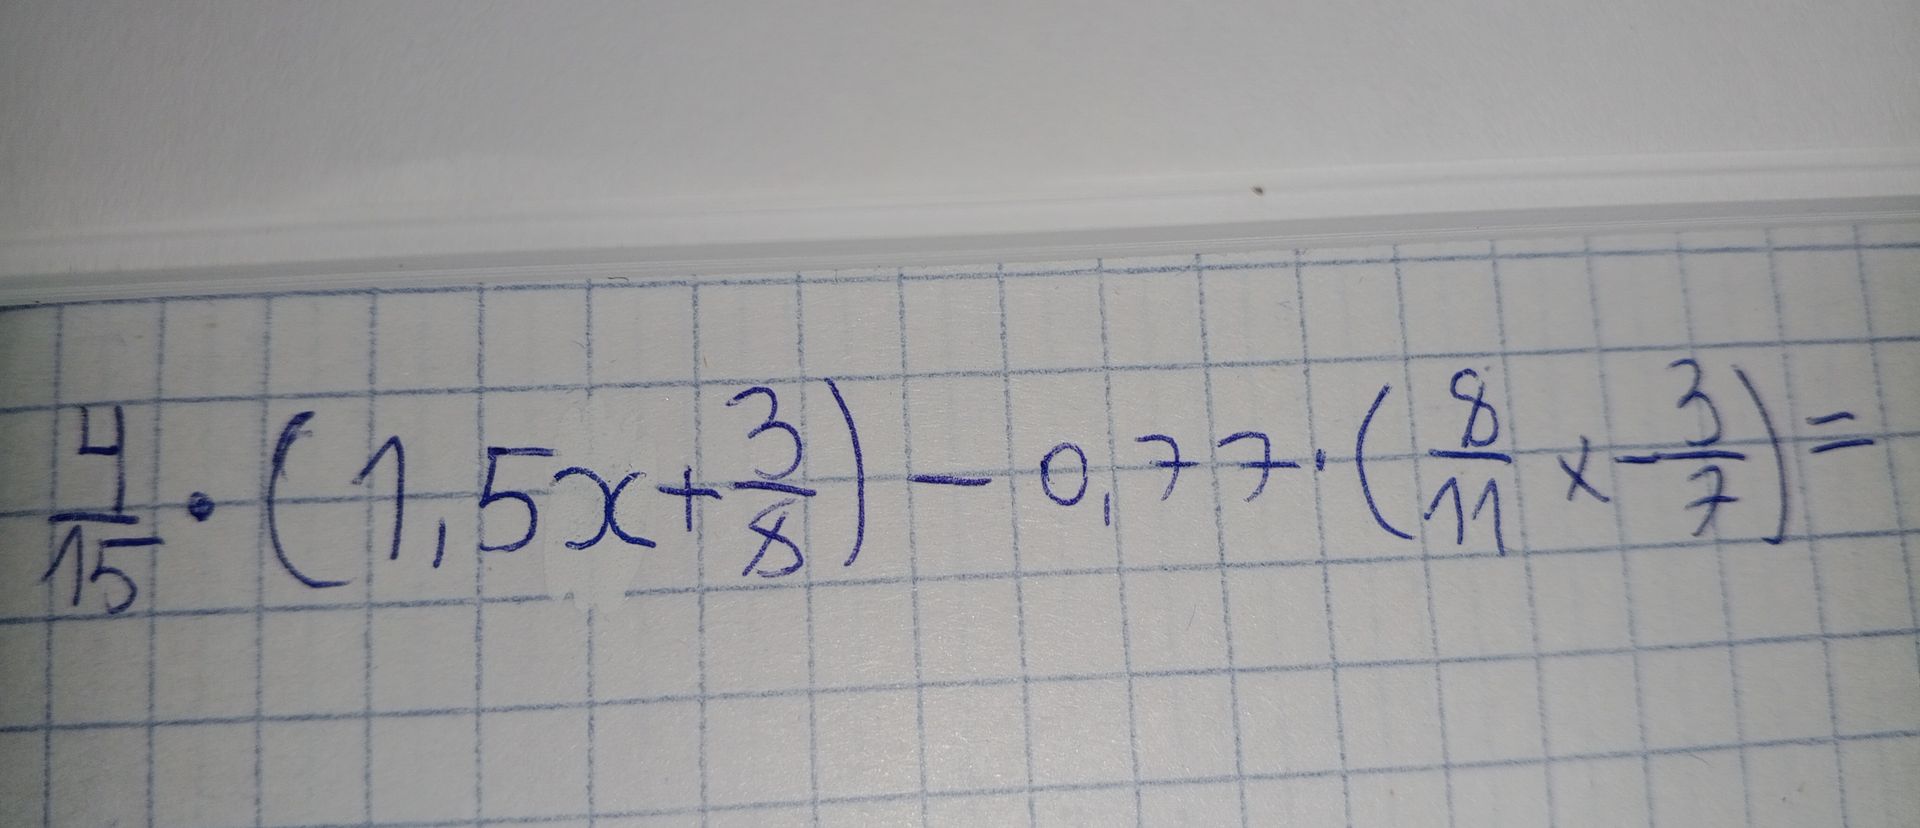 4/15 · (1,5x + 3/8) - 0,77 · (8/11 x - 3/7) =